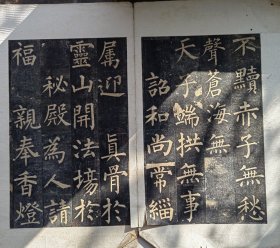 不黷赤子無愁
聲蒼海無
天子端拱無事
詔和尚常緇
屬迎 真骨於
靈山開法場於
秘殿為人請
福 親奉香燈